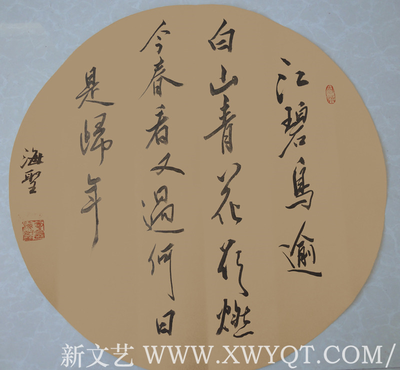 江碧鳥逾
白山青花欲燃
今春看又過何日
是歸年
海聖
新文艺 WWW.XWYQT.COM/